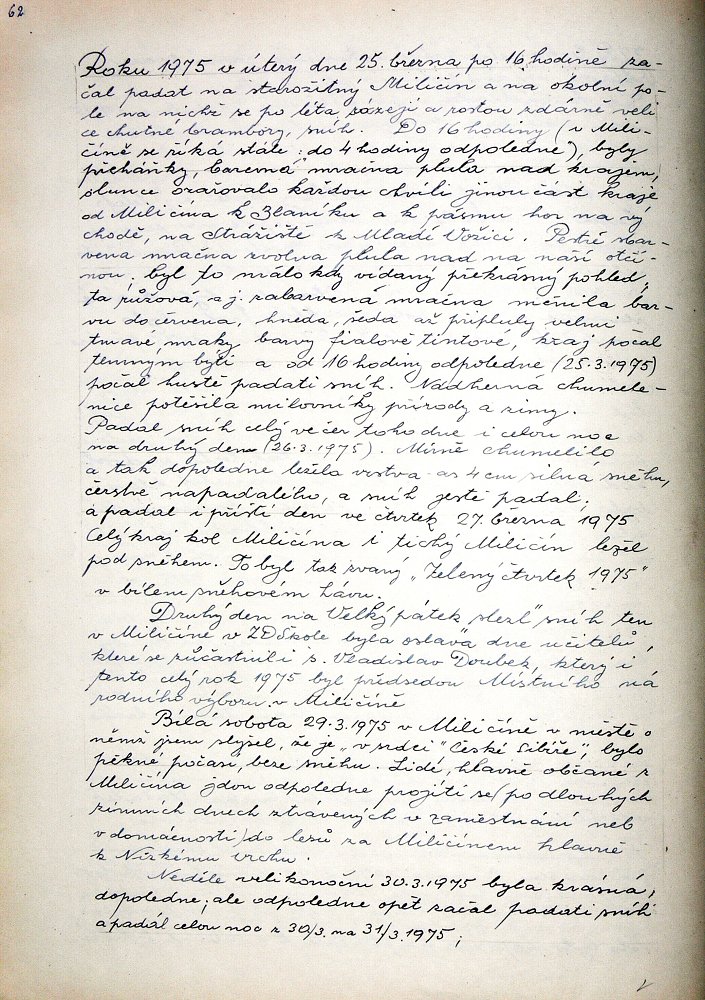 62
Roku 1975 v úterý dne 25. března po 16. hodině za-
čal padat na starožitný Miličín a na okolní po-
le na nichž se po léta rázejí a rostou zdárně veli
ce chutné brambory, sníh. Do 16 hodiny (v Mili-
číně se říká stále: do 4 hodiny odpoledne), byly
přeháňky, barevná mračna plula nad krajem,
slunce ozařovalo každou chvíli jinou část kraje
od Miličína k Blaníku a k pásmu hor na vý
chodě, na Strážiště k Mladé Vožici. Pestře zbar-
vena mračna zvolna plula nad na naší otči-
nou; byl to málokdy vídaný překrásný pohled,
ta růžová, a j. zabarvená mračna měnila bar-
vu do červena, hněda, šeda až připluly velmi
tmavé mraky barvy fialově tintové, kraj počal
temným býti a od 16 hodiny odpoledne (25.3.1975)
počal hustě padati sníh. Nádherná chumele-
nice potěšila milovníky přírody a zimy.
Padal sníh celý večer toho dne i celou noc
na druhý den (26.3.1975). Mírně chumelilo
a tak dopoledne ležela vrstva as 4 cm silná sněhu,
čerstvě napadalého, a sníh ještě padal;
a padal i příští den ve čtvrtek 27. března 1975
Celý kraj kol Miličína i tichý Miličín ležel
pod sněhem. To byl tak zvaný „Zelený čtvrtek 1975"
v bílem sněhovém hávu.
Druhý den na Velký pátek slezl" sníh ten
v Miličíně v ZDŠkole byla oslava dne učitelů,
které se zůčastnili s. Vladislav Doubek, který i
tento celý rok 1975 byl předsedou Místního ná
rodního výboru v Miličíně
Bílá sobota 29.3.1975 v Miličíně v městě o
němž jsem slyšel, že je „v srdci" České Sibiře", bylo
pěkné počasí, beze sněhu. Lidé, hlavně občané z
Miličína jdou odpoledne projíti se (po dlouhých
zimních dnech ztrávených v zaměstnání neb
v domácnosti) do lesů za Miličínem hlavně
k Nízkému vrchu.
Neděle velikonoční 30.3.1975 byla krásná,
dopoledne; ale odpoledne opět začal padati sníh
a padal celou noc z 30/3. na 31/3.1975;